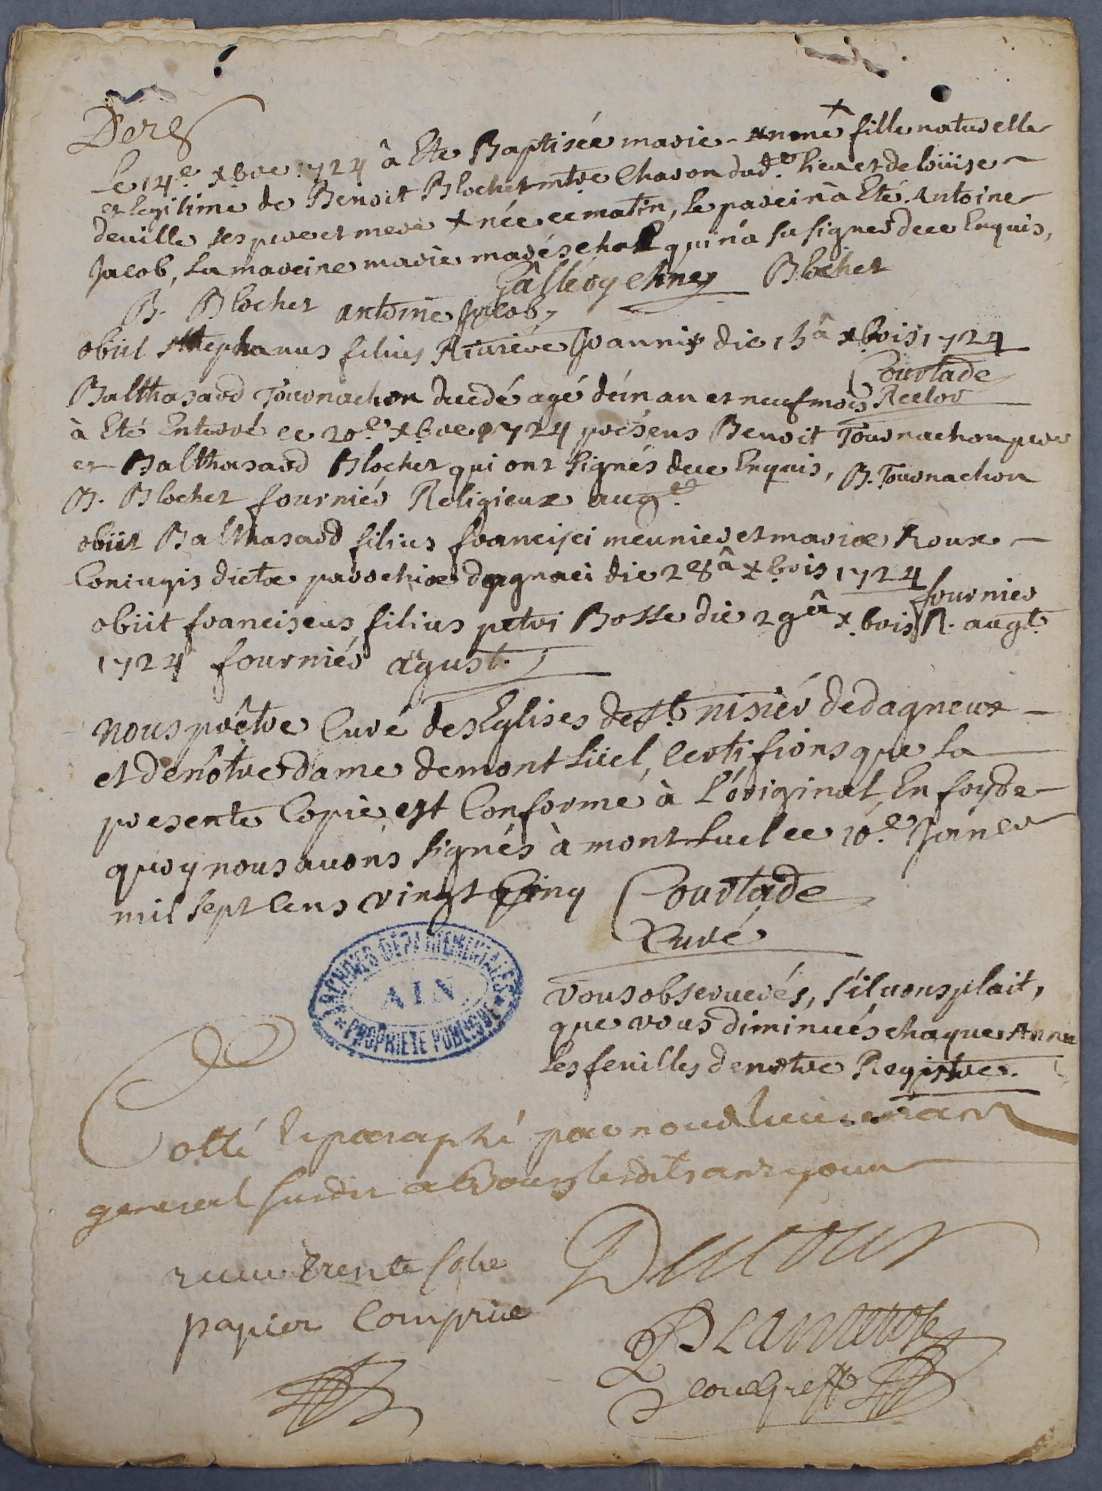 Der.e
Le 14.e xbre 1724 â Eté Baptisée marie-Anne fille naturelle
et legitime de Benoit Blochet mtre Charon dud.t lieu et de loüise
deville ses pere et mere x née ce matin, le parein à Eté Antoine
Jacob, la mareine marie maréschal qui n'a su signer de ce Enquis,
B. Blochet antoine Jacob, Blochet
obiit stephanus filius Joannis die 15â xbris 1724
Courtade Rector
Balthasard Tournachon decedé agé d'ùn an et neuf mois
à Eté Enterré ce 20.e xbre 1724 présens Benoit Tournachon pere
et Balthasard Blochet qui ont signés de ce Enquis, B. Tournachon
B. Blochet fourniér Religieux aug.
obiit Balthasard filius francisci meunier et mariæ Roux
Coniugis dictæ parrochiæ dagnaci die 28â xbris 1724
fournier
obiit franciscus filius petri Bosse die 29â xbris R. augt.
1724 fourniér agust.
nous prêtre Curé des Eglises de st. nisiér de dagneux
et de nôtre dame de mont luel, Certifions que la
presente Copie est Conforme à l'original, En foy de
quoy nous avons signés à mont luel ce 10.e Janer
mil sept Cens vingt Cinq Courtade
Curé
ARCHIVES DÉPARTEMENTALES
AIN
PROPRIÉTÉ PUBLIQUE
vous observerés, s'il vous plait,
que vous diminués chaque Année
les feuilles de nôtre Registre.
Cotté et paraphé par nous lieutenant
general susdit a Bourg lesdits an et jour
receu trente sols
papier Compris